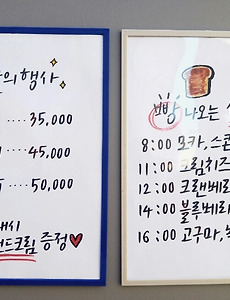 의 행사
35,000
45,000
50,000
증정
빵 나오는
8:00 모카, 스콘
11:00 크림치즈
12:00 크랜베리
14:00 블루베리
16:00 고구마,